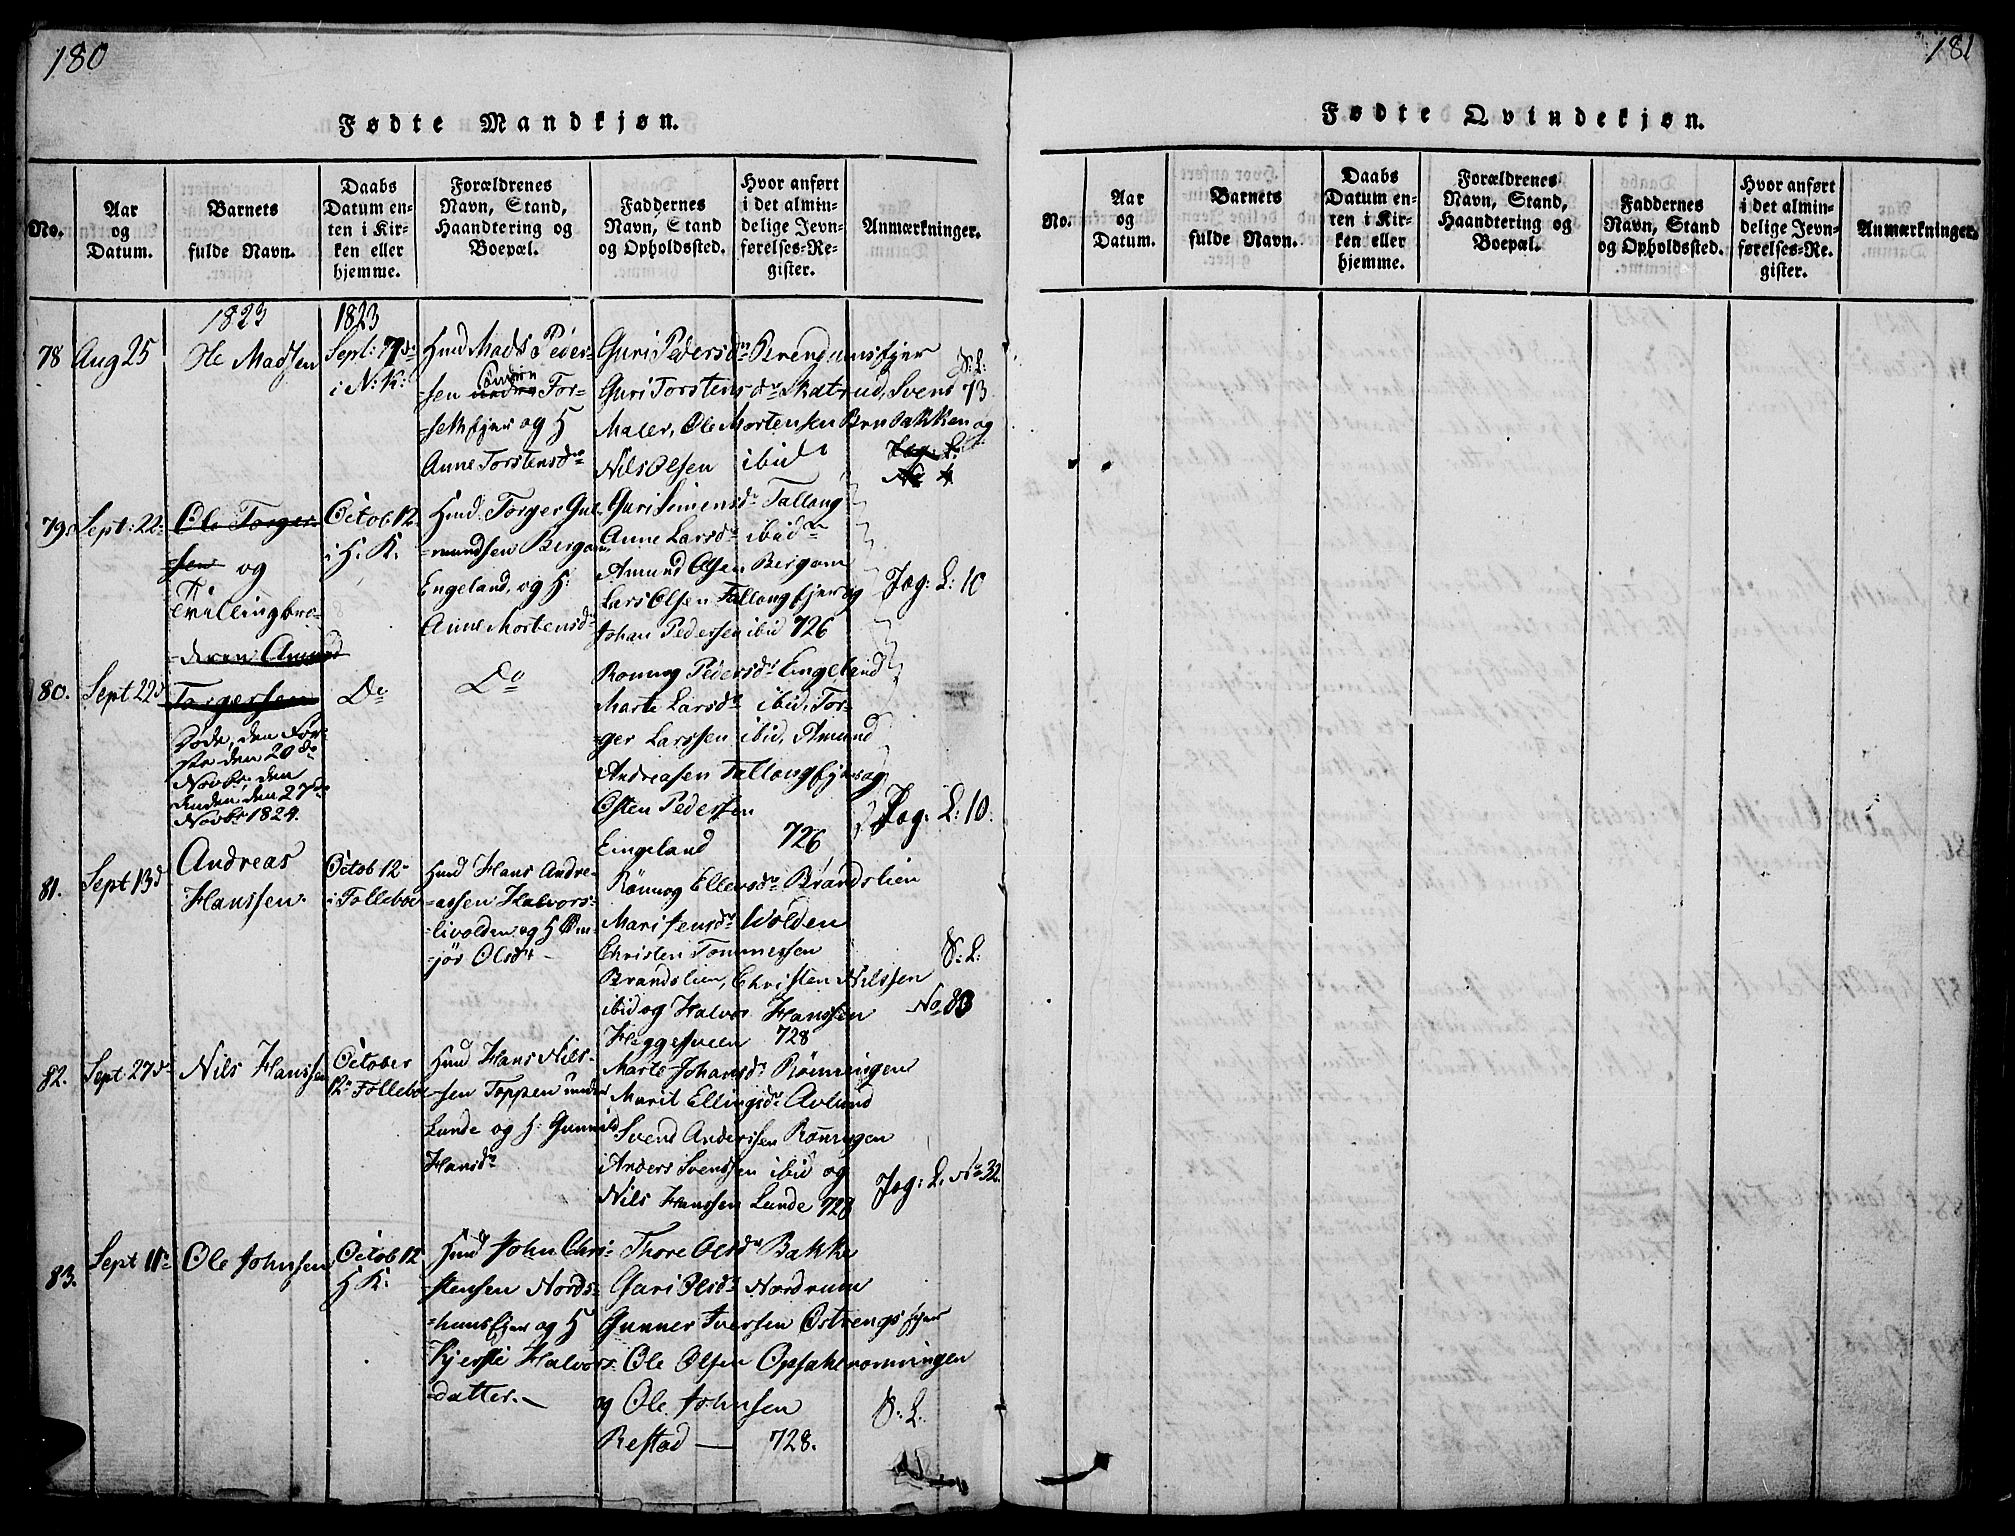 180
Fødte Mandkjøn.
No.
Aar
og
Datum.
Barnets
fulde Navn.
Daabs
Datum en-
ten i Kir-
ken eller
hjemme.
Forældrenes
Navn, Stand,
Haandtering og
Boepæl.
Faddernes
Navn, Stand
og Opholdssted.
Hvor anført
i det almin-
delige Jevn-
førelses-Re-
gister.
Anmærkninger.
1823
1823
78
Aug 25
Ole Madsen
Sept: 7de
i N: K:
Hmd Mads Peder-
sen
For-
sethejer og H
Anne Torstensdr
Guri Pedersdr Berendumsejer
Guri Torstensdr Skatrud, Svend
Maler, Ole Mortensen Brubakken og
Nils Olsen ibid
S: L:
73
Jog: L:
No 4
79
Sept: 22
Ole Torger-
sen og
Tvillingbro-
deren Amund
Octob 12
i H. K.
Hmd Torger Gul-
mundsen Bergom
Engeland, og H:
Anne Mortensdr
Guri Simensdr Tallang
Anne Larsdr ibid
Amund Olsen Bergom
Lars Olsen Tallangejer og
Johan Pedersen ibid 726
Jog: L: 10
80.
Sept 22d
Torgersen
Døde, den Før-
ste den 20de
Novbr, den
Anden, den 27de
Novbr 1824.
Do
Do
Ronnog Pedersdr Eingeland
Marte Larsdr ibid, Tor-
ger Larssen ibid, Amund
Andreasen Tallangejer og
Osten Pedersen
Eingeland 726
Jog: L: 10.
81.
Sept 13d
Andreas
Hanssen.
Octob 12
i Folleboe
Hmd Hans Andre-
assen Halvors-
livolden og H Øn-
jør Olsdr
Rönnog Ellersdr Brandslien
Mari Jensdr Wolden
Christen Tommessen
Brandslien, Christen Nilssen
ibid og Halvor Hanssen
Heggesveen 728
S: L:
No 83
82.
Sept 27de
Nils Hanssen
October
12 Folleboe
Hmd Hans Nils-
sen Toppen under
Lunde og H: Gunnild
Hansdr
Marte Johansdr Rönningen
Marit Ellingsdr Avlund
Svend Anderssen Rönningen
Anders Svendsen ibid og
Nils Hanssen Lunde 728
Jog: L. No 32.
83.
Sept 11
Ole Johnsen
Octob 12
H K:
Hmd John Chri-
stensen Nords-
humsejer og H
Kjersti Halvors-
datter.
Thore Olsdr Bakke
Gari Olsdr Nordrum
Gunner Iversen Ostrengsejer
Ole Olsen Opsahlronningen
og Ole Johnsen
Restad 728.
S: L.
181
Fødte Qvindekjøn.
No.
Aar
og
Datum.
Barnets
fulde Navn.
Daabs
Datum en-
ten i Kir-
ken eller
hjemme.
Forældrenes
Navn, Stand,
Haandtering og
Boepæl.
Faddernes
Navn, Stand
og Opholdssted.
Hvor anført
i det almin-
delige Jevn-
førelses-Re-
gister.
Anmærkninger.